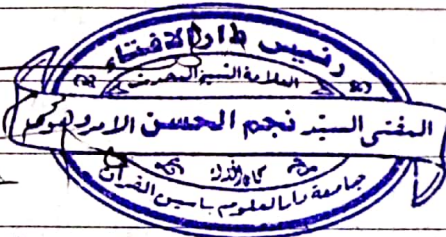 رئيس دار الافتاء
العلامة الشيخ المحدث
المفتى السيد نجم الحسن الامروهوى
كان الله له
جامعة دار العلوم ياسين القرآن